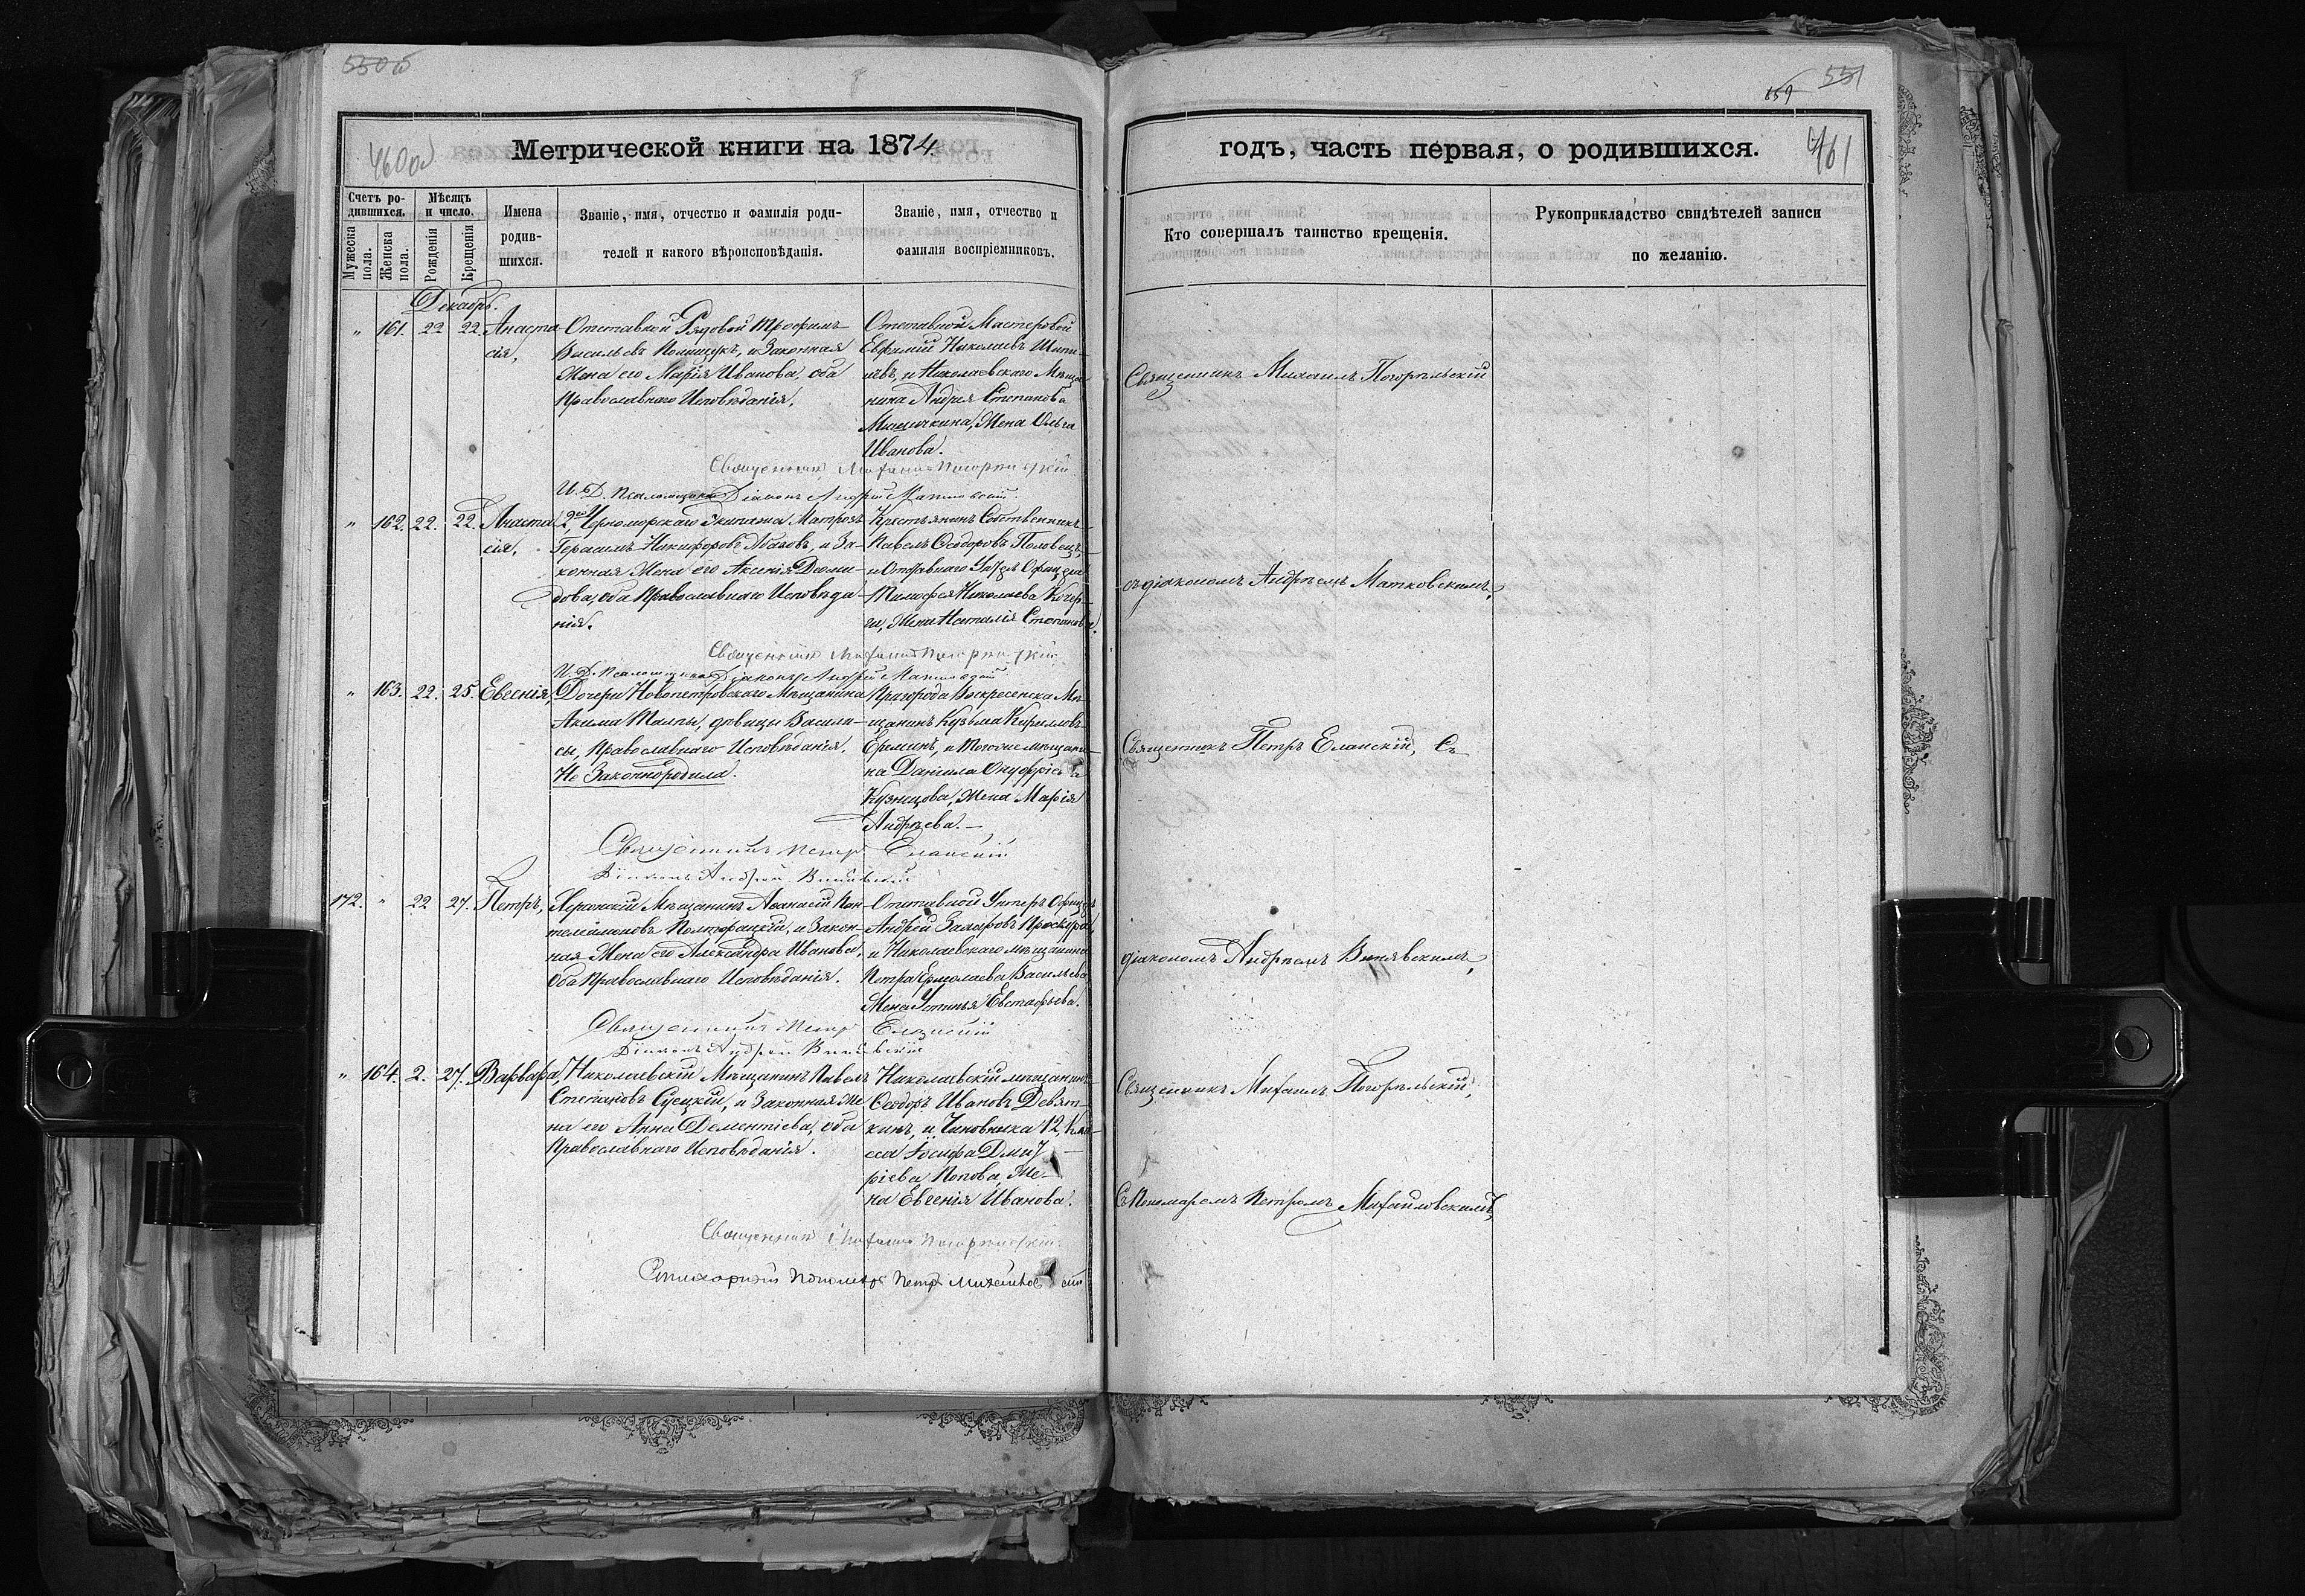 550об
Метрической книги на 1874
460об
Счетъ ро-
дившихся.
Мужеска
пола.
Женска
пола.
Мѣсяцъ
и число.
Рожденія
Крещенія
Имена
родив-
шихся.
Званіе, имя, отчество и фамилія роди-
телей и какого вѣроисповѣданія.
Званіе, имя, отчество и
фамилія воспріемниковъ.
Декабрь.
" 161. 22 22. Анаста
сія,
Отставной Рядовой Трофимъ
Васильевъ Полищукъ, и Законная
Жена его Марія Иванова, оба
Православнаго Исповѣданія.
Отставной Мастеровой
Евфимій Николаевъ
и Николаевскаго Мѣща
нина Андрея Степанова
Жена Ольга
Иванова.
Священникъ Михаилъ Погорѣльскій
И. Д. Псаломщика Діаконъ Андрей Матковскій.
" 162. 22. 22. Анаста
сія,
2го Черноморскаго Экипажа Матрозъ
Герасимъ Никифоровъ и За-
конная Жена его Аксенія Деми-
дова, оба Православнаго Исповѣда-
нія.
Крестьянинъ Собственникъ
Павелъ Ѳеодоровъ Половецъ,
и Отставнаго Унтеръ Офицера
Тимофея Николаева
Жена Наталія Степанова.
Священникъ Михаилъ Погорѣльскій
И. Д. Псаломщика Діаконъ Андрей Матковскій
" 163. 22. 25. Евгенія,
Дочери Новопетровскаго Мѣщанина
Акима Талпы, дѣвицы Васили-
сы, Православнаго Исповѣданія.
Не Законнорожденна.
Пригорода Воскресенска Мѣ-
щанинъ Кузьма Кирилловъ
Ереминъ, и мѣщани-
на Даніила Онуфріева
Кузнецова, Жена Марія
Андреева.
Священникъ Петръ Еланскій
Діаконъ Андрей
172. " 22 27. Петръ,
Херсонскій Мѣщанинъ Аѳанасій Пан-
телеймоновъ и Закон-
ная Жена его Александра Иванова,
Оба Православнаго Исповѣданія.
Отставной Унтеръ Офицеръ
Андрей Захаровъ
и Николаевскаго мѣщанина
Петра Ермолаева Васильева
Жена Устинья Евстафьева.
Священникъ Петръ Еланскій
Діаконъ Андрей
" 164. 2. 27. Варвара,
Николаевскій Мѣщанинъ Павелъ
Степановъ Сущкій, и Законная Же
на его Анна Дементіева, оба
Православнаго Исповѣданія.
Николаевскій мѣщанинъ
Ѳеодоръ Ивановъ Девят-
кинъ, и Чиновника 12, Кла-
сса Іосифа Дмит
ріева Попова, Же-
на Евгенія Иванова.
Священникъ Михаилъ Погорѣльскій
Стихарный Пономарь Петръ Михайловскій
551
859
годъ, часть первая, о родившихся.
461
Кто совершалъ таинство крещенія.
Рукоприкладство свидѣтелей записи
по желанію.
Священникъ Михаилъ Погорѣльскій
съ діакономъ Андреемъ Матковскимъ,
Священникъ Петръ Еланскій, Съ
діакономъ Андреемъ
Священникъ Михаилъ Погорѣльскій,
Съ Пономаремъ Петромъ Михайловскимъ,